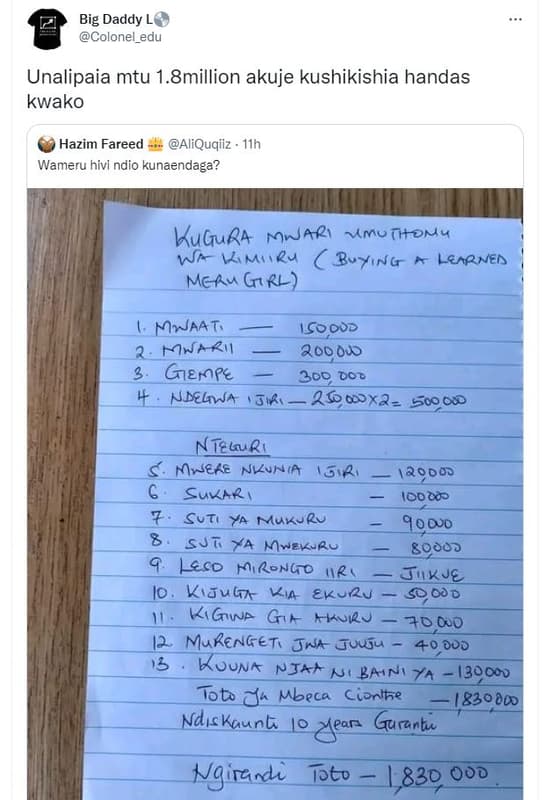 Big Daddy L
@Colonel_edu
Unalipaia mtu 1.8million akuje kushikishia handas
kwako
Hazim Fareed @AliQuqiiz · 11h
Wameru hivi ndio kunaendaga?
KUGURA MWARI UMUTHOMU
WA KIMIIRU (BUYING A LEARNED
MERU GIRL)
1. MWAATI — 150,000
2. MWARII — 200,000
3. GIEMPE — 300,000
4. NDEGWA IJIRI — 250,000X2= 500,000
NTEGURI
5. MWERE NKUNIA IJIRI — 120000
6. SUKARI — 100000
7. SUTI YA MUKURU — 90,000
8. SUTI YA MWEKURU — 80,000
9. LESO MIRONGO IIRI — JIIKUE
10. KIJUGA KIA EKURU — 50,000
11. KIGIINA GIA AKURU — 70,000
12 MURENGETI JWA JUUJU — 40,000
13. KUUNA NJAA NI BAINI YA — 130,000
Toto ya Mbeca Cionthe — 1,830,000
Ndiskaunti 10 years Garantii
Ngirandi Toto — 1,830,000.